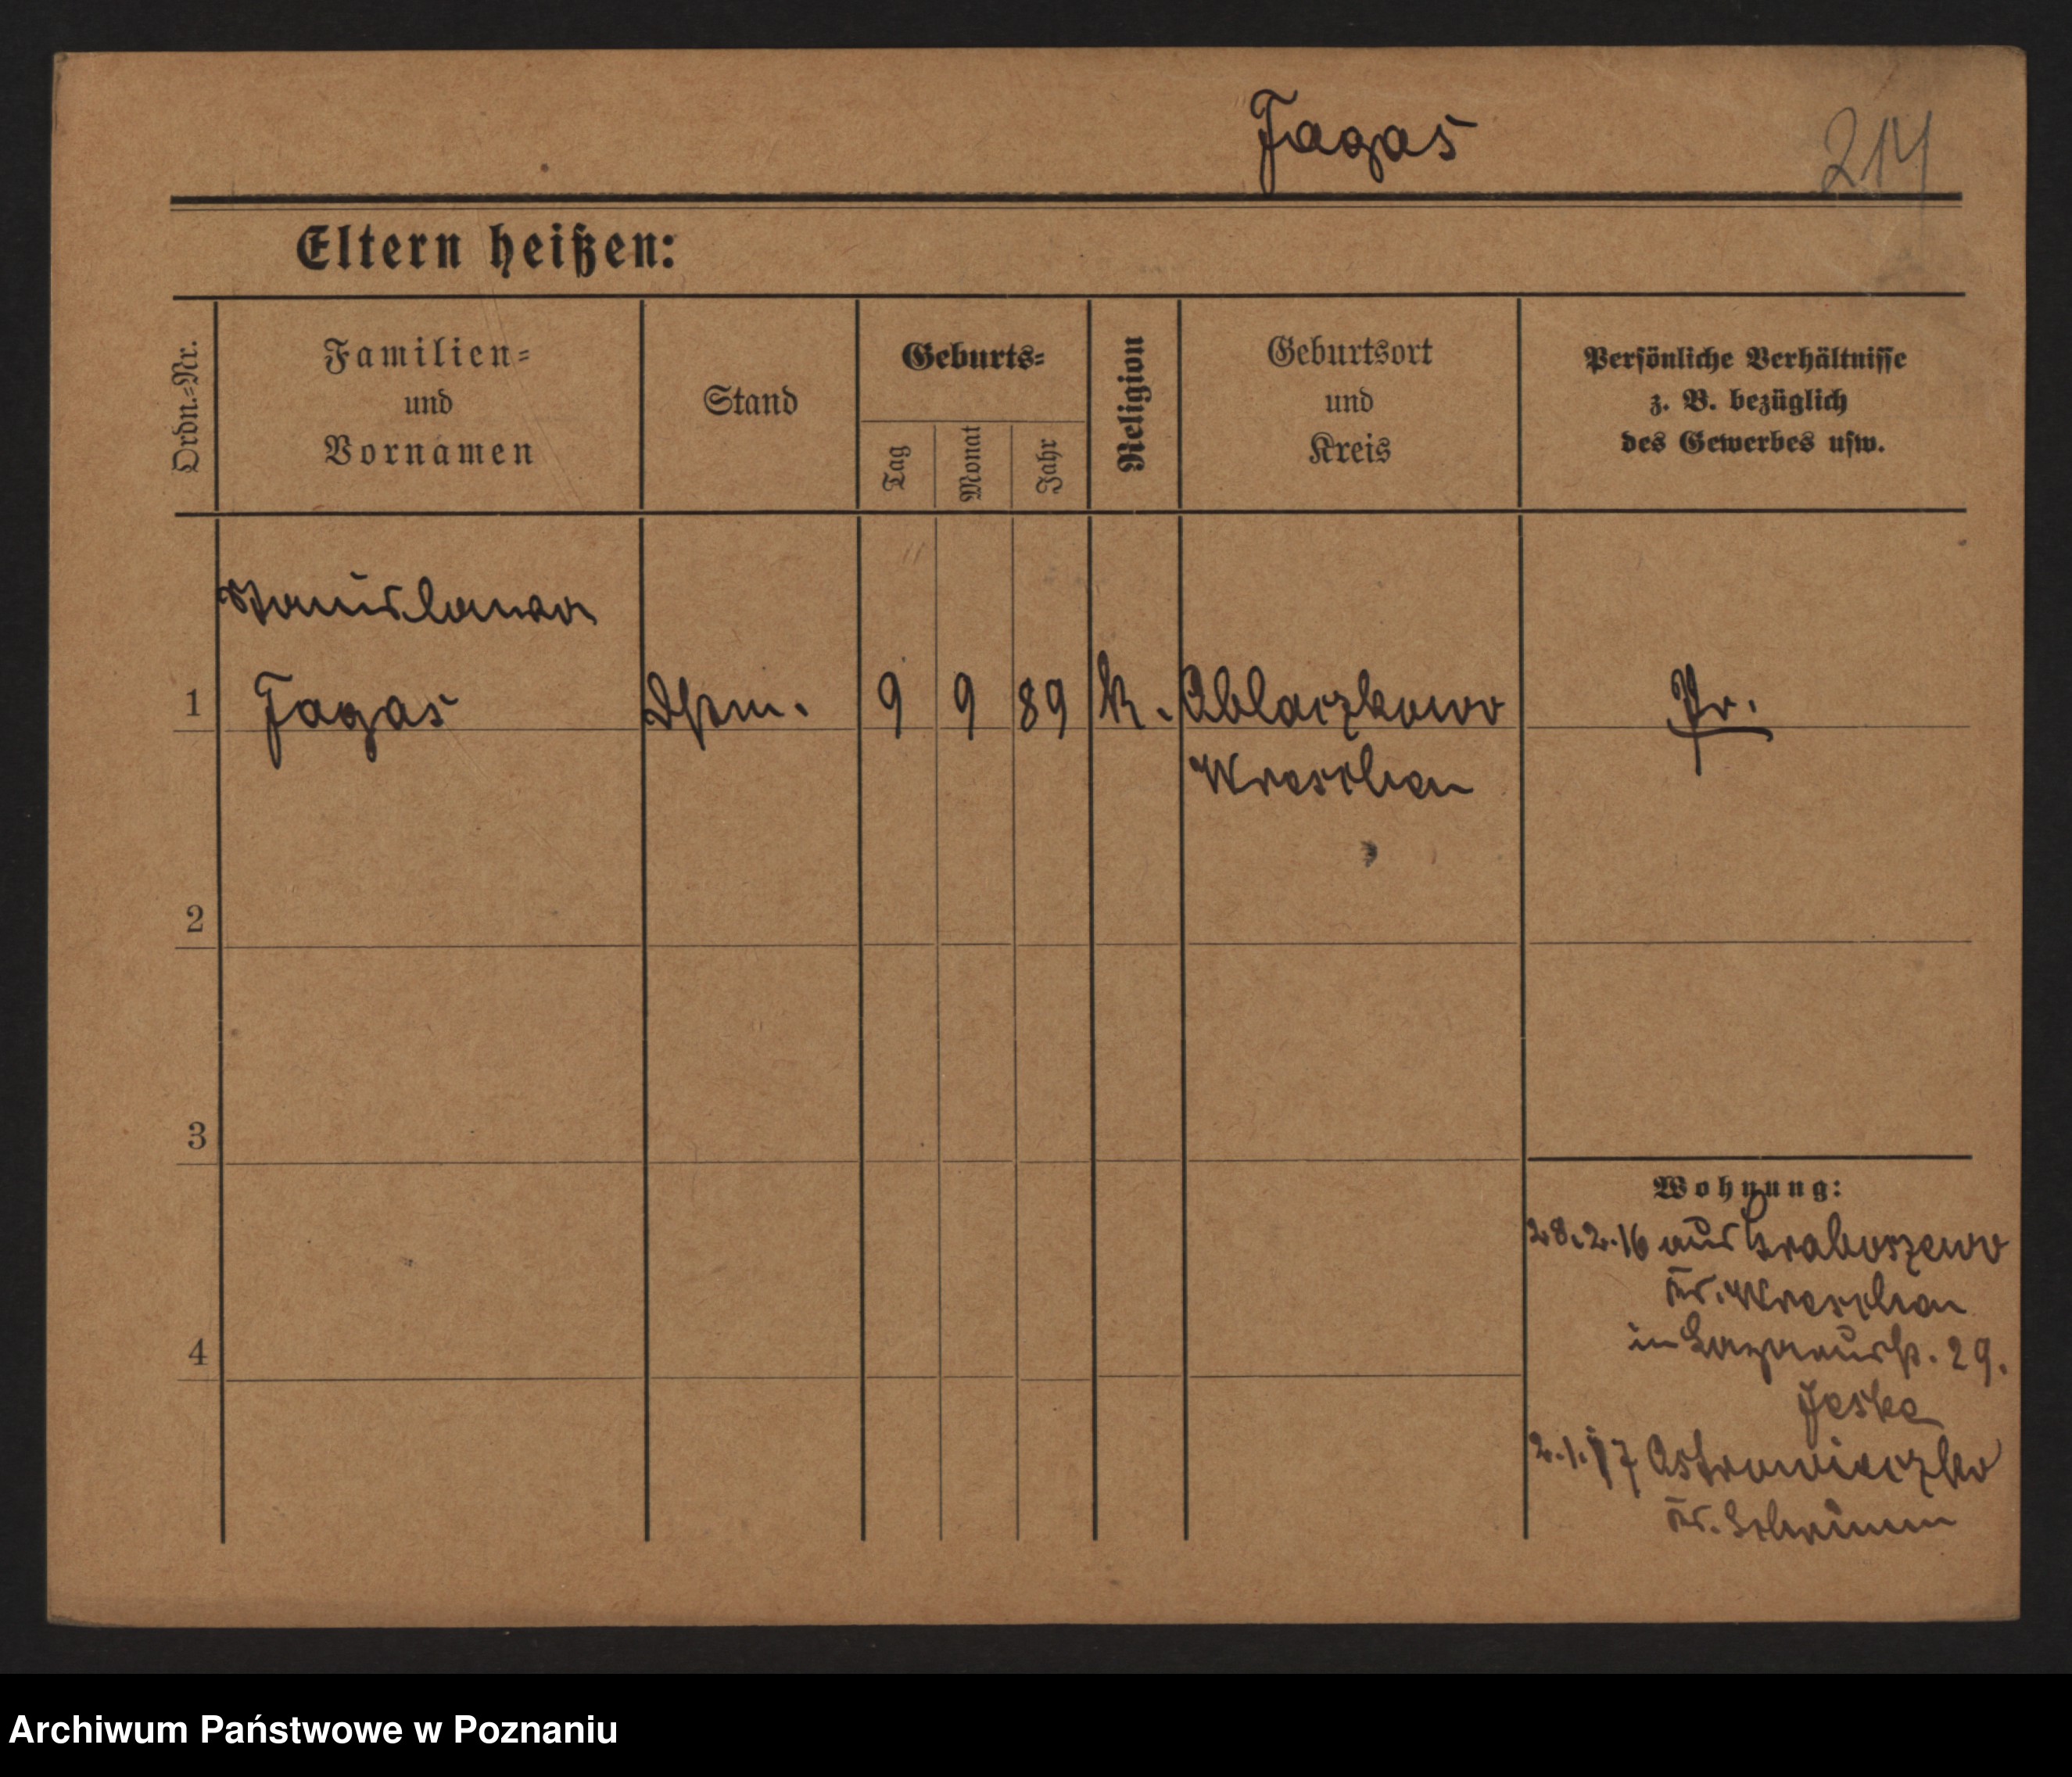 Fagas
214
Eltern heißen:
Ordn.=Nr.
Familien=
und
Vornamen
Stand
Geburts=
Tag
Monat
Jahr
Religion
Geburtsort
und
Kreis
Persönliche Verhältnisse
z. B. bezüglich
des Gewerbes usw.
Stanislawa
1 Fagas 9 9 89 k. Ablaczkowo Pr.
Wreschen
2
3
Wohnung:
28.2.16 aus Graboszewo
Kr. Wreschen
4
in Lazarusstr. 29.
Jeske
2.1.17
Kr. Schrimm
Archiwum Państwowe w Poznaniu